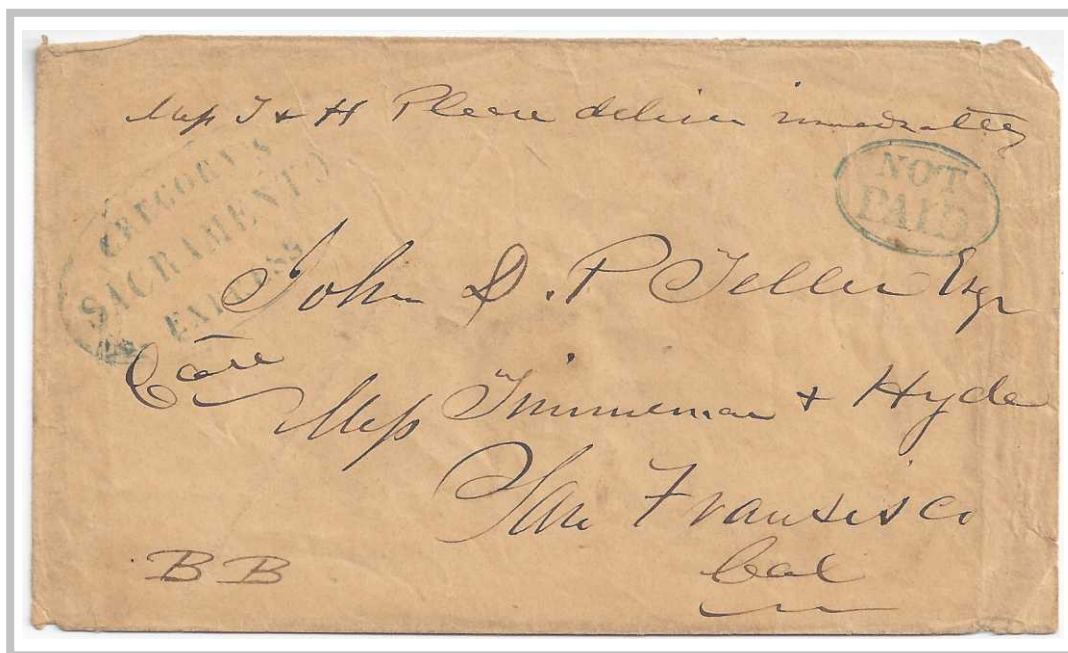 Mess T & H Please deliver immediately
GREGORY'S
SACRAMENTO
EXPRESS
NOT
PAID
John D. P Teller Esqr
Care
Mess Timmeman & Hyde
San Fransisco
Cal
BB